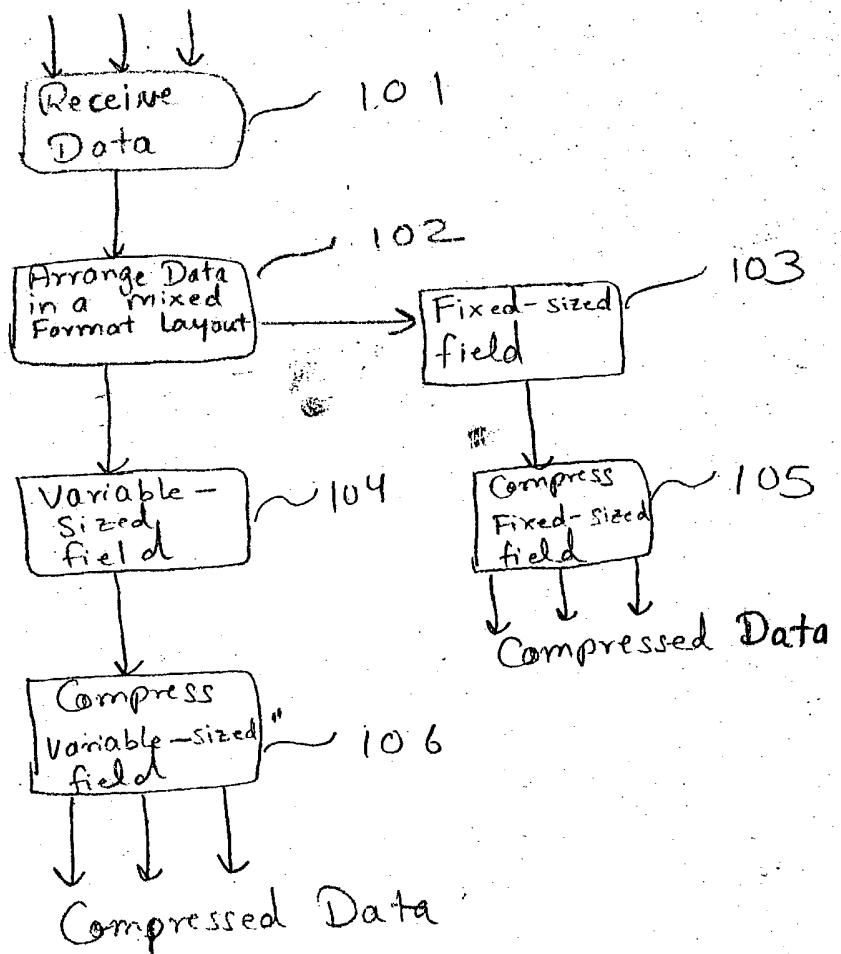 Receive
Data
101
102
Arrange Data
in a mixed
Format Layout
103
Fixed-sized
field
Variable-
Sized
field
104
Compress
Fixed-Sized
field
105
Compressed Data
Compress
Variable-sized"
field
106
Compressed Data